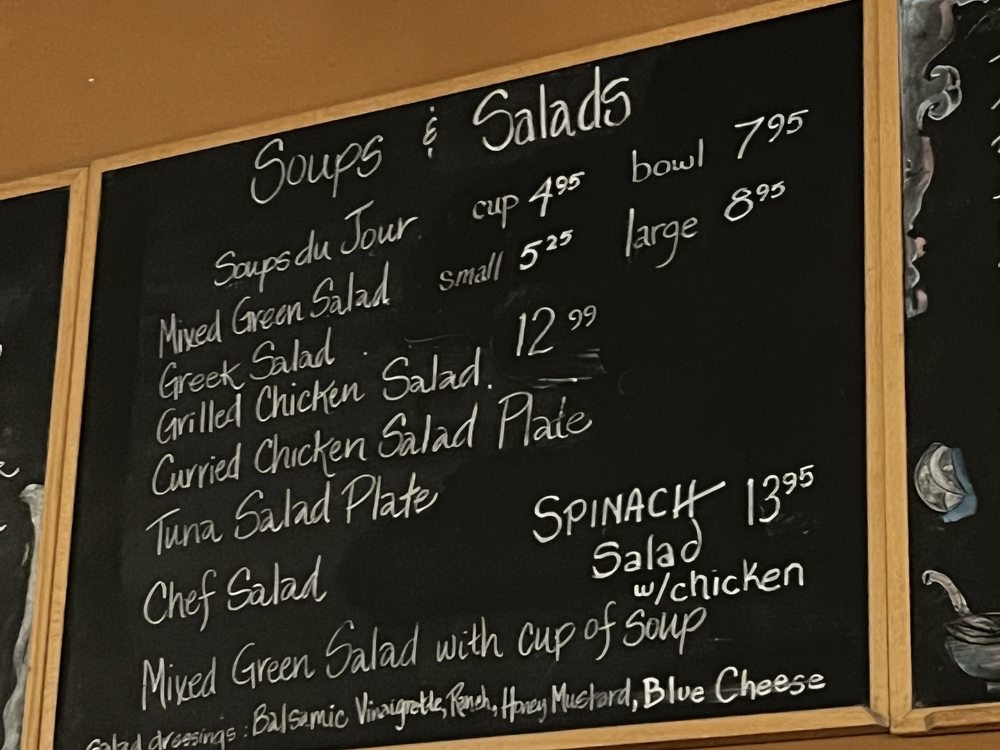 Soups & Salads
Soups du Jour cup 4.95 bowl 7.95
Mixed Green Salad small 5.25 large 8.95
Greek Salad
Grilled Chicken Salad. 12.99
Curried Chicken Salad Plate
Tuna Salad Plate
SPINACH 13.95
Salad
w/chicken
Chef Salad
Mixed Green Salad with cup of soup
Salad dressings: Balsamic Vinaigrette, Ranch, Honey Mustard, Blue Cheese